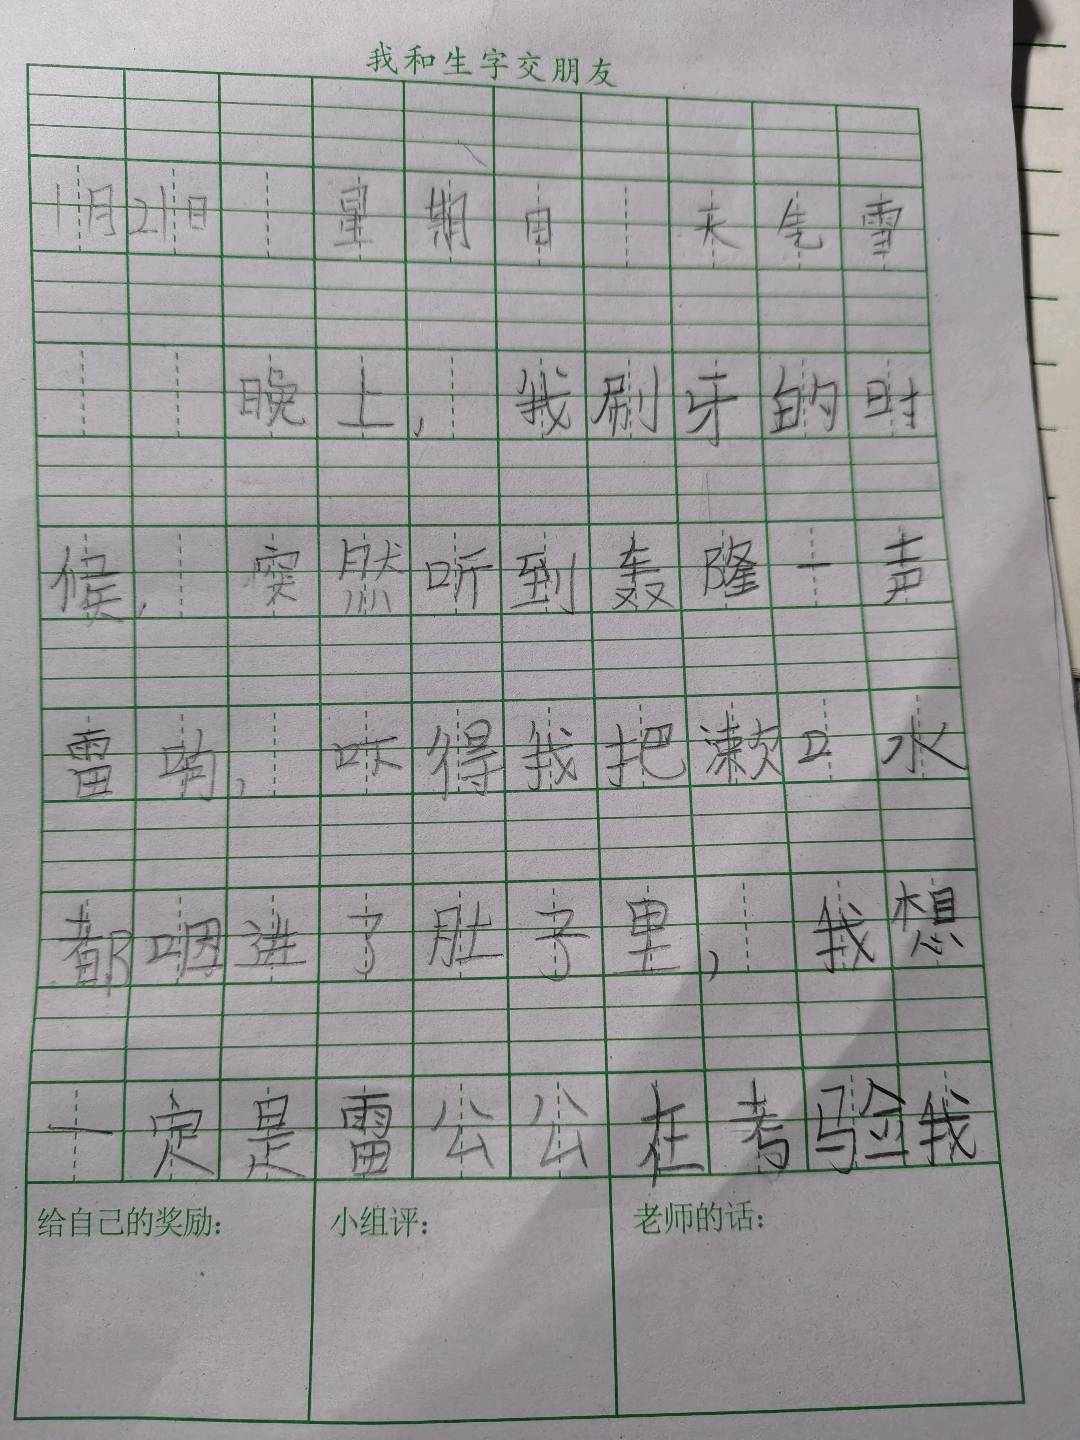 我和生字交朋友
1月21日 星期日 天气雪
晚上,我刷牙的时
候,突然听到轰隆一声
雷响,吓得我把漱口水
都咽进了肚子里,我想
一定是雷公公在考验我
给自己的奖励: 小组评: 老师的话: